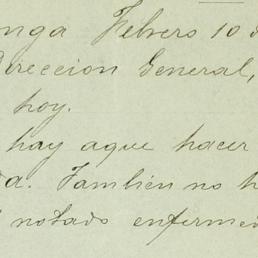 nga Febrero 10 d
Direccion General,
hoy.
hay aque hacer
a. Tambien no h
notado enferme